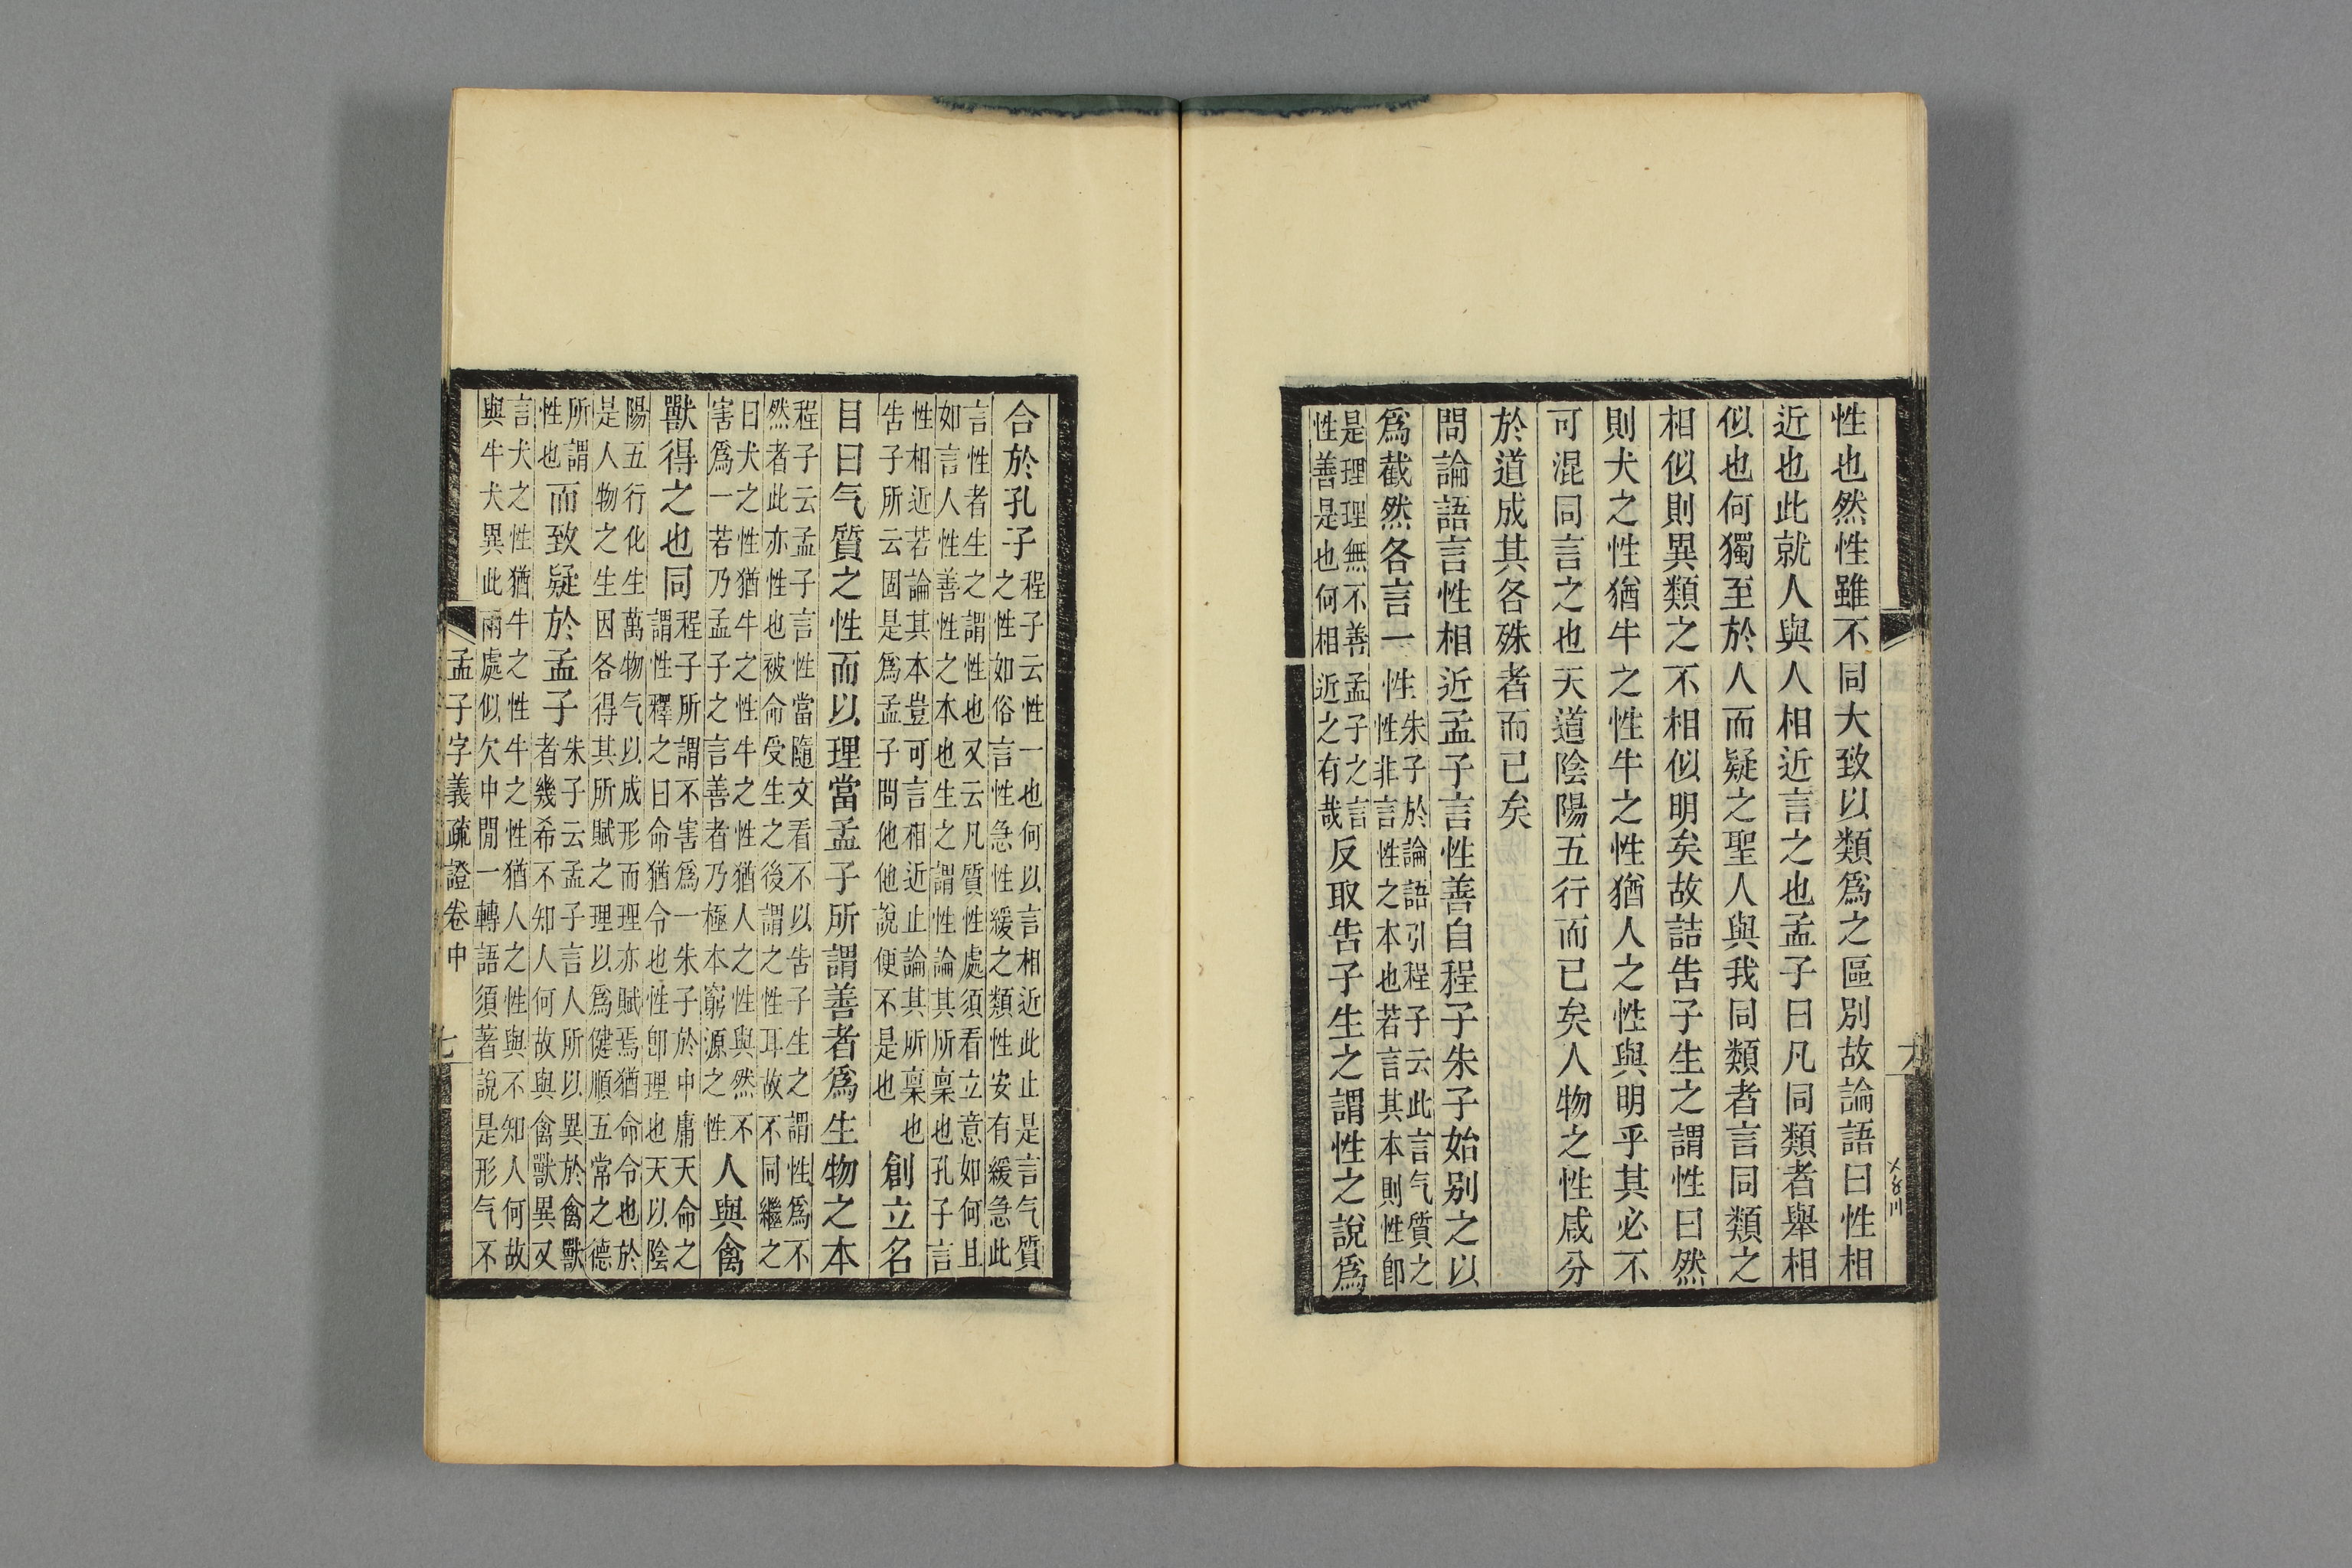 性也然性雖不同大致以類爲之區別故論語曰性相
近也此就人與人相近言之也孟子曰凡同類者舉相
似也何獨至於人而疑之聖人與我同類者言同類之
相似則異類之不相似明矣故詰告子生之謂性曰然
則犬之性猶牛之性牛之性猶人之性與明乎其必不
可混同言之也天道陰陽五行而已矣人物之性咸分
於道成其各殊者而已矣
問論語言性相近孟子言性善自程子朱子始別之以
爲截然各言一性
朱子於論語引程子云此言气質之
性非言性之本也若言其本則性卽
是理理無不善孟子之言
性善是也何相近之有哉
反取告子生之謂性之說爲
合於孔子
程子云性一也何以言相近此止是言气質
之性如俗言性急性緩之類性安有緩急此
言性者生之謂性也又云凡質性處須看立意如何且
如言人性善性之本也生之謂性論其所稟也孔子言
性相近若論其本豈可言相近止論其所稟也
告子所云固是爲孟子問他他說便不是也
創立名
目曰气質之性而以理當孟子所謂善者爲生物之本
程子云孟子言性當隨文看不以告子生之謂性爲不
然者此亦性也被命受生之後謂之性耳故不同繼之
曰犬之性猶牛之性牛之性猶人之性與然不
害爲一若乃孟子之言善者乃極本窮源之性
人與禽
獸得之也同
程子所謂不害爲一朱子於中庸天命之
謂性釋之曰命猶令也性卽理也天以陰
陽五行化生萬物气以成形而理亦賦焉猶命令也於
是人物之生因各得其所賦之理以爲健順五常之德
所謂
性也
而致疑於孟子
朱子云孟子言人所以異於禽獸
者幾希不知人何故與禽獸異又
言犬之性猶牛之性牛之性猶人之性與不知人何故
與牛犬異此兩處似欠中閒一轉語須著說是形气不
孟子字義疏證卷中
七